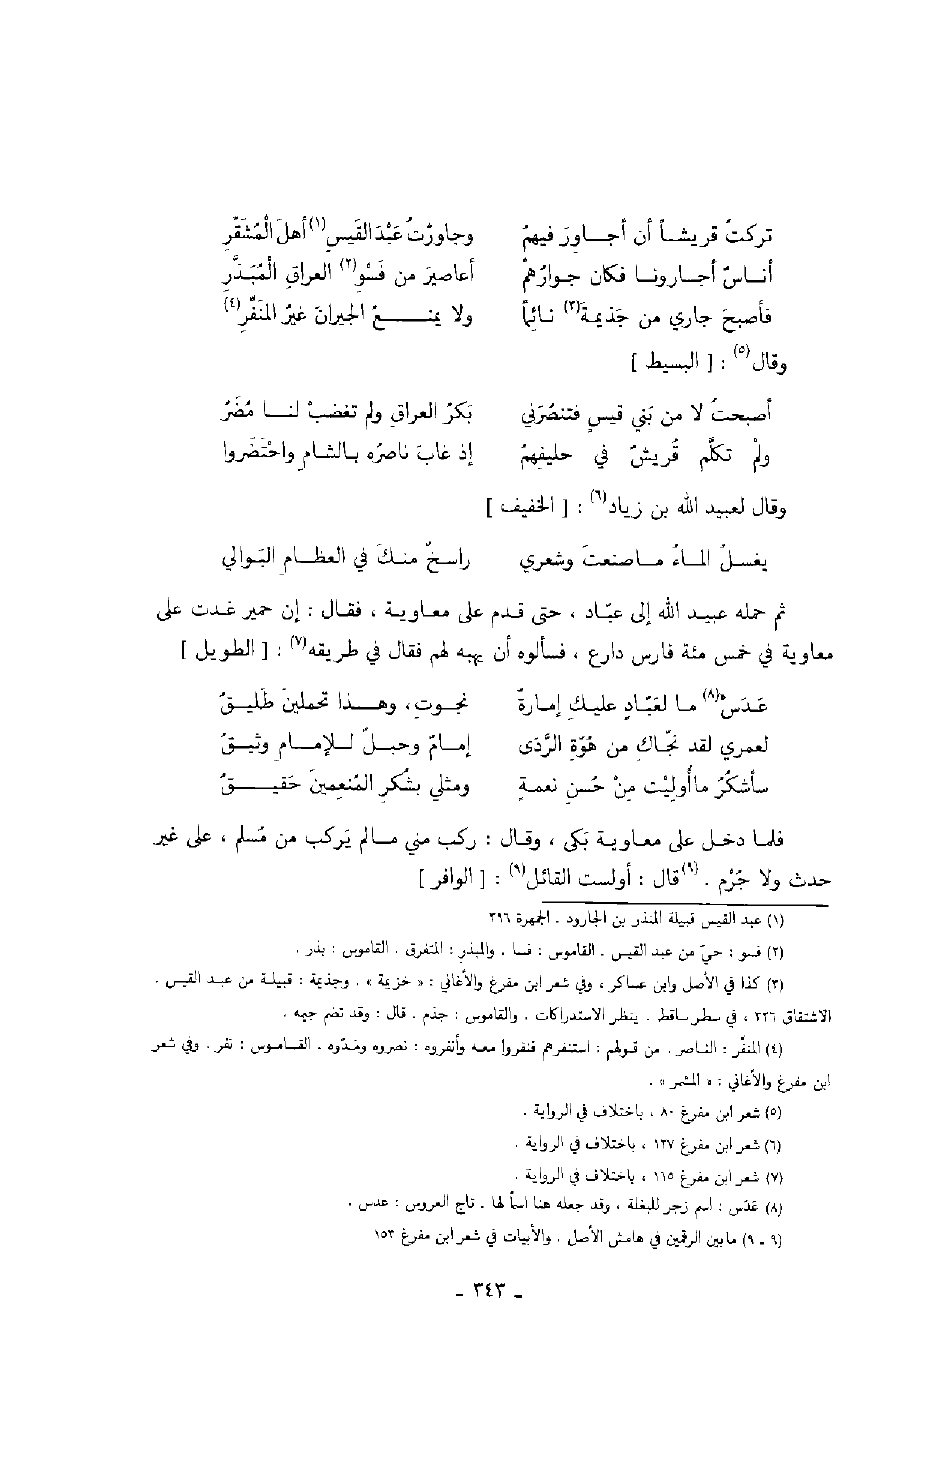 تركتُ قريشاً أن أجاورَ فيهمُ وجاورْتُ عَبْدَ القَيسِ(١) أهلَ الْمُشَقَّرِ
أناسٌ أجارونا فكان جوارُهُمْ أعاصيرَ من فَسْوِ(٢) العراقِ الْمُبَذَّرِ
فأصبحَ جاري من جَذيمةَ(٣) نائماً ولا يمنعُ الجيرانَ غيرُ المنَفِّرِ(٤)
وقال(٥) : [ البسيط ]
أصبحتُ لا من بَني قيسٍ فتنصُرَني بَكرُ العراقِ ولم تغضبْ لنا مُضَرُ
ولمْ تكلَّم قُريشٌ في حليفِهمُ إذ غابَ ناصرُه بالشام واحْتَضَروا
وقال لعبيد الله بن زياد(٦) : [ الخفيف ]
يغسلُ الماءُ ماصنعتَ وشعري راسخٌ منكَ في العظامِ البَوالي
ثم حمله عبيد الله إلى عبّاد ، حتى قدم على معاوية ، فقال : إن حمير غدت على
معاوية في خمس مئة فارس دارع ، فسألوه أن يهبه لهم فقال في طريقه(٧) : [ الطويل ]
عَدَسْ(٨) ما لعَبّادٍ عليكِ إمارةٌ نجوتِ، وهذا تحملينَ طَليقُ
لعمري لقد نجّاكِ من هُوّةِ الرَّدَى إمامٌ وحبلٌ للإمامِ وثيقُ
سأشكُرُ ماأُوليْت مِنْ حُسنِ نعمةٍ ومثلي بشُكرِ المُنعِمينَ حَقيقُ
فلما دخل على معاوية بَكى ، وقال : ركب مني مالم يَركب من مُسلم ، على غير
حدث ولا جُرْم . (٩)قال : أولست القائل(٩) : [ الوافر ]
(١) عبد القيس قبيلة المنذر بن الجارود . الجمهرة ٢٩٦
(٢) فسو : حيّ من عبد القيس . القاموس : فسا . والمبذر : المتفرق . القاموس : بذر .
(٣) كذا في الأصل وابن عساكر ، وفي شعر ابن مفرغ والأغاني : « خزيمة » . وجذيمة : قبيلة من عبد القيس .
الاشتقاق ٢٢٦ ، في سطر ساقط . ينظر الاستدراكات . والقاموس : جذم . قال : وقد تضم جيمه .
(٤) المنفّر : الناصر . من قولهم : استنفرهم فنفروا معه وأنفروه : نصروه ومَدّوه . القاموس : نفر . وفي شعر
ابن مفرغ والأغاني : « المشمر » .
(٥) شعر ابن مفرغ ٨٠ ، باختلاف في الرواية .
(٦) شعر ابن مفرغ ١٢٧ ، باختلاف في الرواية .
(٧) شعر ابن مفرغ ١١٥ ، باختلاف في الرواية .
(٨) عَدَس : اسم زجر للبغلة ، وقد جعله هنا اسماً لها . تاج العروس : عدس .
(٩ ـ ٩) مابين الرقمين في هامش الأصل . والأبيات في شعر ابن مفرغ ١٥٣
ـ ٣٤٣ ـ